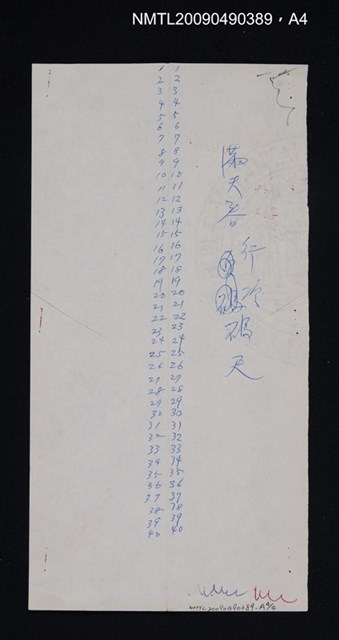 NMTL20090490389，A4
1 1
2 2
3 3
4 4
5 5
6 6
7 7
8 8
9 9
10 10
11 11
12 12
13 13
14 14
15 15
16 16
17 17
18 18
19 19
20 20
21 21
22 22
23 23
24 24
25 25
26 26
27 27
28 28
29 29
30 30
31 31
32 32
33 33
34 34
35 35
36 36
37 37
38 38
39 39
40 40
滿天香
行
碼
天